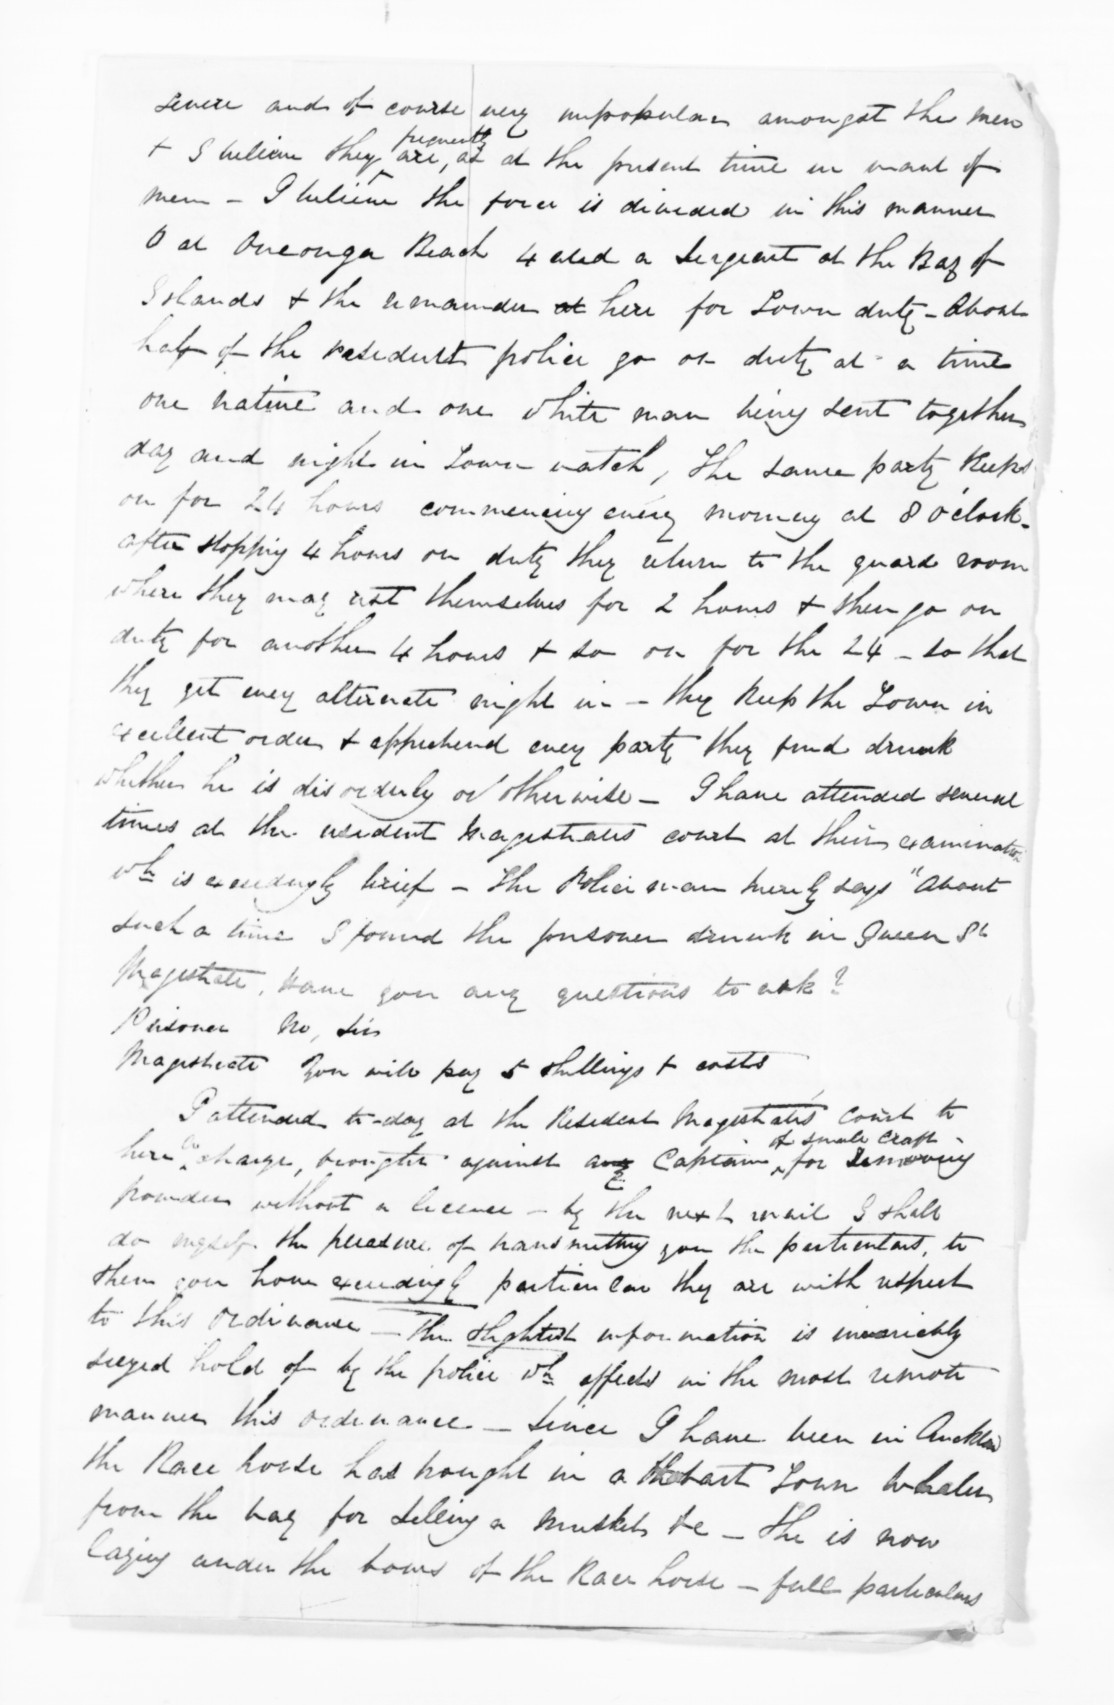 severe and of course very unpopular amongst the men
+ I believe they are, frequently as at the present time in want of
men - I believe the force is divided in this manner
at Oneonga Beach 4 and a Sergeant at the Bay of
Islands + the remainder at here for Town duty - About
half of the resident police go on duty at a time
one native and one white man being sent together
day and night in Town watch, the same party keeps
on for 24 hours commencing every morning at 8 o'clock -
after stopping 4 hours on duty they return to the guard room
where they may rest themselves for 2 hours + then go on
duty for another 4 hours + so on for the 24 - so that
they get every alternate night in - they keep the Town in
excellent order + apprehend every party they find drunk
whether he is disorderly or otherwise - I have attended several
times at the resident Magistrates court at their examination
wh is exceedingly brief - the Police man merely says "About
such a time I found the prisoner drunk in Queen St
Magistrate, Have you any questions to ask?
Prisoner No, Sir
Magistrate You will pay 5 shillings + costs
I attended to-day at the Resident Magistrates court to
here a charge, brought against any Captain of small craft for removing
powder without a licence - by the next mail I shall
do myself the pleasure of transmitting you the particulars, to
shew you how exceedingly particular they are with respect
to this Ordinance - The slightest information is invariably
seized hold of by the police wh affects in the most remote
manner this ordinance - Since I have been in Auckland
the Race horse has brought in a Hobart Town Whaler
from the bay for selling a musket &c - She is now
laying under the bows of the Race horse - full particulars